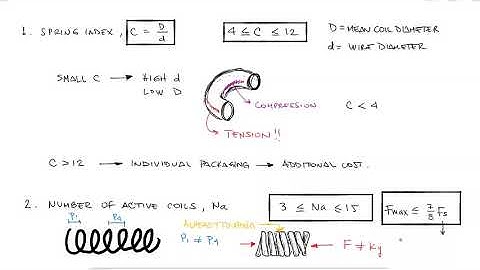 1. SPRING INDEX, C = D/d 4 ≤ C ≤ 12 D = MEAN COIL DIAMETER
d = WIRE DIAMETER
SMALL C → HIGH d
LOW D
COMPRESSION C < 4
TENSION!!
C > 12 → INDIVIDUAL PACKAGING → ADDITIONAL COST.
2. NUMBER OF ACTIVE COILS, Na 3 ≤ Na ≤ 15 Fmax ≤ 7/8 Fs
P1 P4
P1 ≠ P4 F ≠ ky